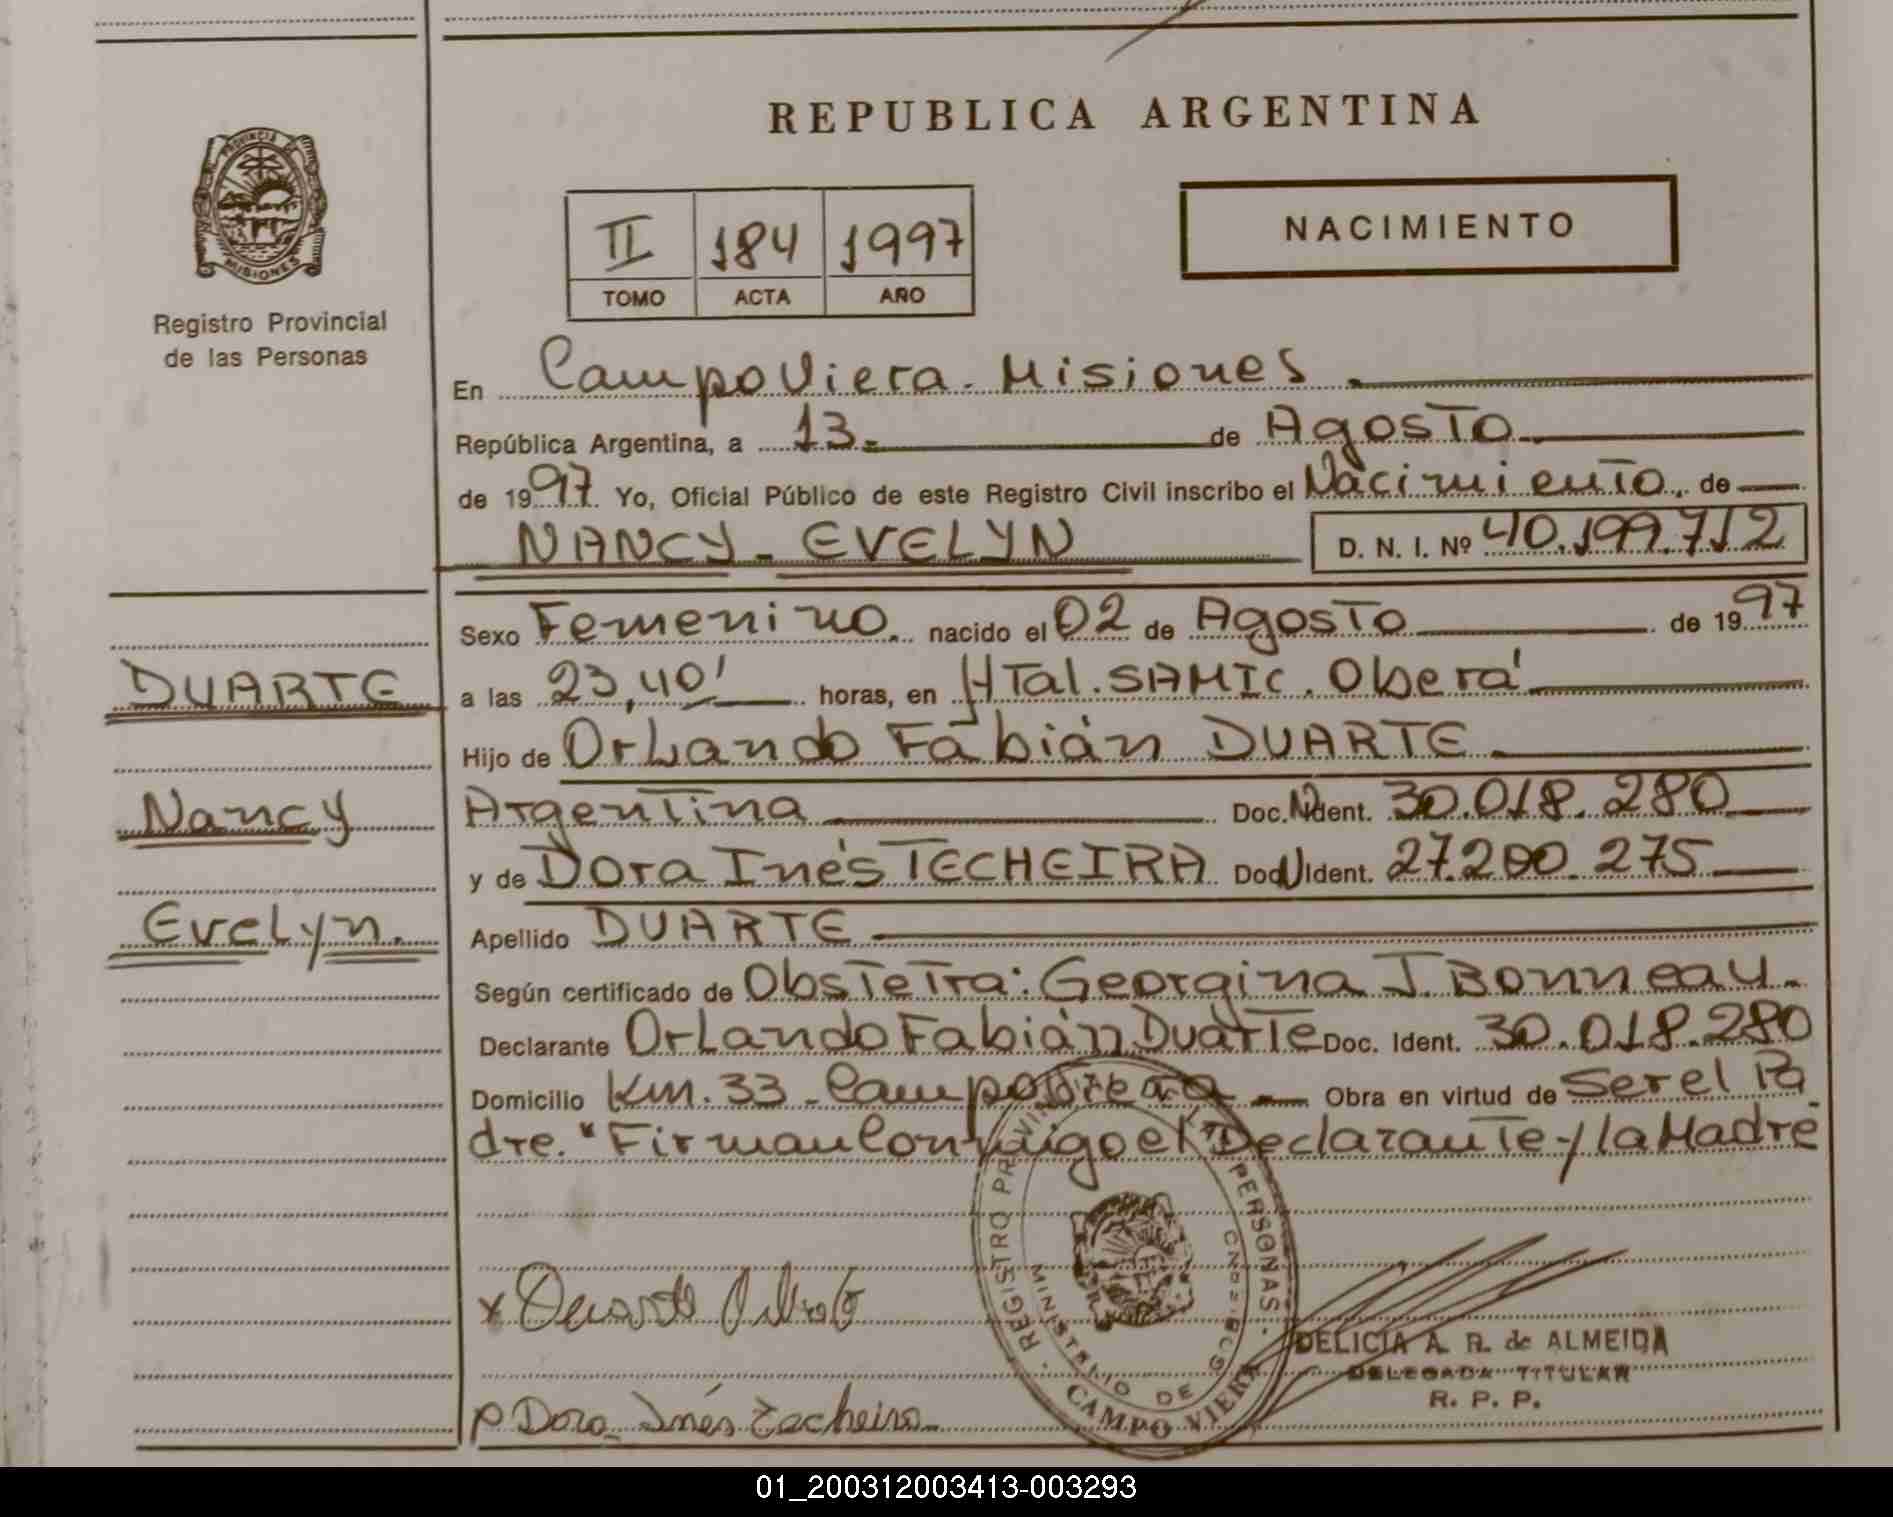 REPUBLICA ARGENTINA
PROVINCIA DE
MISIONES
Registro Provincial
de las Personas
II 184 1997
TOMO ACTA AÑO
NACIMIENTO
En Campo Viera. Misiones.
República Argentina, a 13. de Agosto
de 1997. Yo, Oficial Público de este Registro Civil inscribo el Nacimiento. de
NANCY - EVELYN D. N. I. Nº 40.199.712
Sexo Femenino. nacido el 02 de Agosto de 1997
DUARTE
a las 23,40' horas, en HTal. SAMIc. Oberá
Hijo de OrLando Fabián DUARTE
Nancy
Argentina Doc. N Ident. 30.018.280
y de Dora Inés TECHEIRA Doc. N Ident. 27.200.275
Evelyn.
Apellido DUARTE
Según certificado de Obstetra: Georgina J. Bonneau.
Declarante OrLando Fabián Duarte Doc. Ident. 30.018.280
Domicilio Km. 33 - Campo Viera Obra en virtud de Ser el Pa
dre. "Firman Conmigo el Declarante y la Madre
REGISTRO PROVINCIAL DE LAS PERSONAS.
MINISTERIO DE GOB
CAMPO VIERA
x Duarte
DELICIA A. R. de ALMEIDA
DELEGADA TITULAR
R. P. P.
p Dora Inés Techeira
01_200312003413-003293